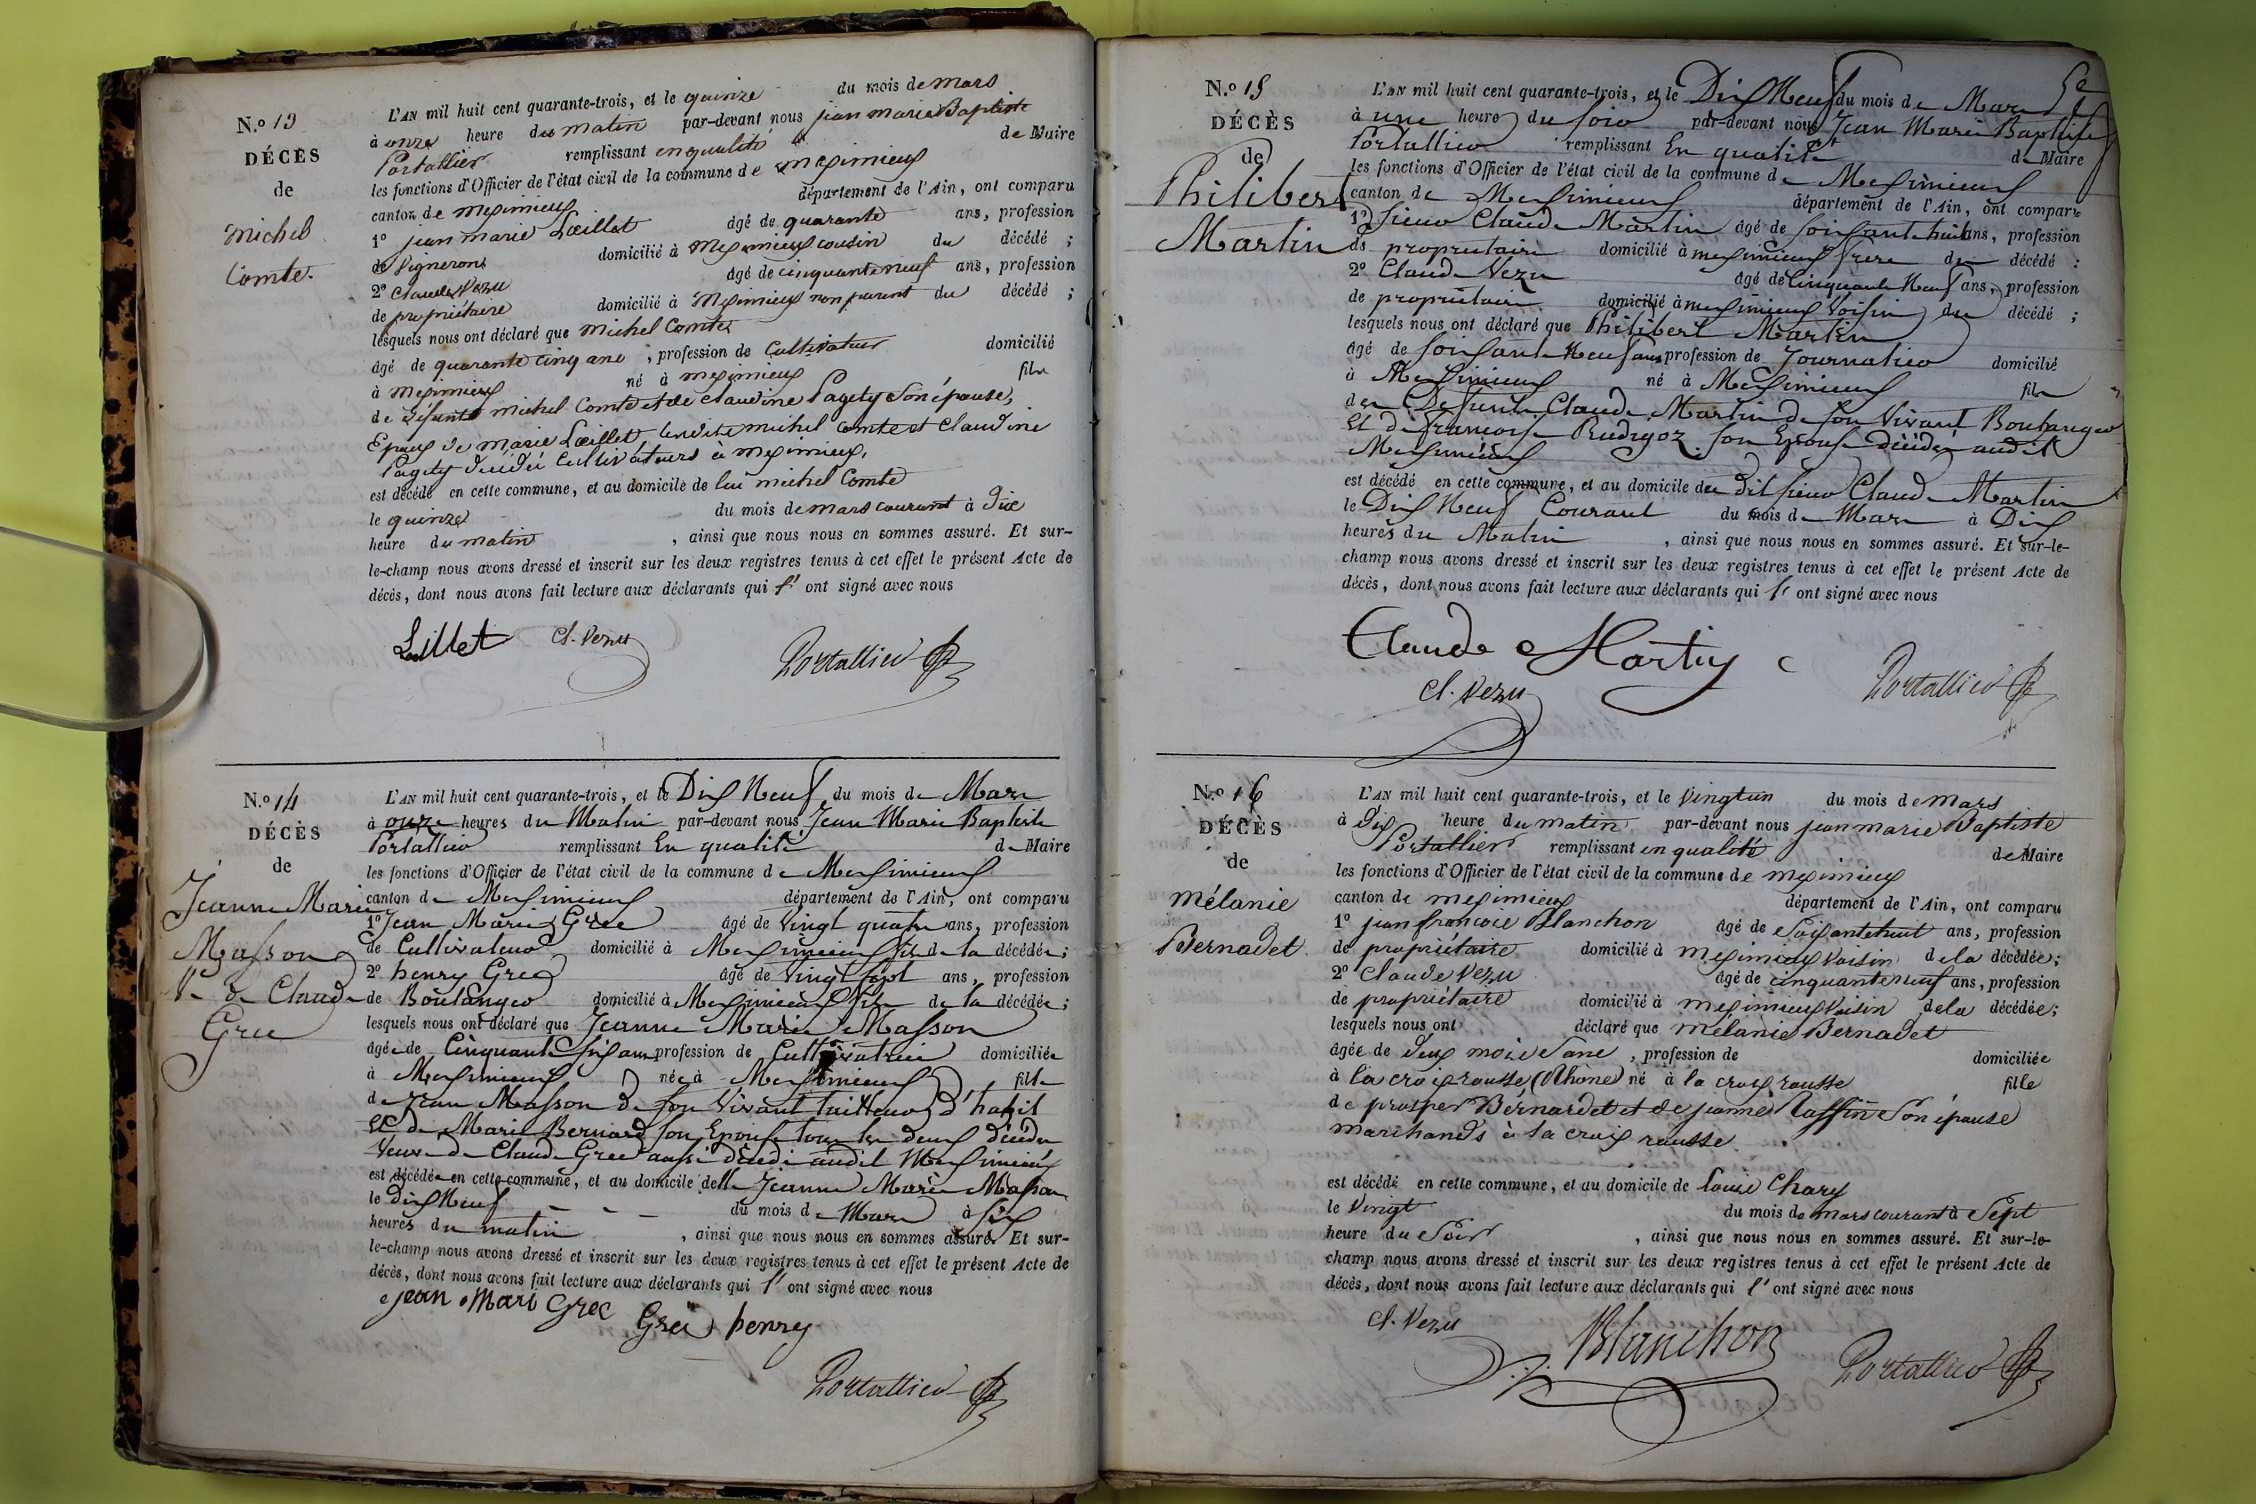 N.o 13
DÉCÈS
de
Michel
Comte.
L'AN mil huit cent quarante-trois, et le quinze du mois de mars
à onze heure du matin par-devant nous jean marie Baptiste
Portallier remplissant en qualité de Maire
les fonctions d'Officier de l'état civil de la commune de meximieux
canton de meximieux département de l'Ain, ont comparu
1o jean marie Lœillet âgé de quarante ans, profession
de vigneron domicilié à meximieux cousin du décédé ;
2o Claude Vezu âgé de cinquante neuf ans, profession
de propriétaire domicilié à Meximieux non parent du décédé ;
lesquels nous ont déclaré que michel Comte
âgé de quarante cinq ans, profession de Cultivateur domicilié
à meximieux né à meximieux fils
de défunts michel Comte et de claudine Pagety son épouse,
Epoux de marie Lœillet lesdits michel Comte et Claudine
Pagety décédés cultivateurs à meximieux,
est décédé en cette commune, et au domicile de lui michel Comte
le quinze du mois de mars courant à dix
heure du matin, ainsi que nous nous en sommes assuré. Et sur-
le-champ nous avons dressé et inscrit sur les deux registres tenus à cet effet le présent Acte de
décès, dont nous avons fait lecture aux déclarants qui l' ont signé avec nous
Lœillet Cl. Vezu Portallier
N.o 14
DÉCÈS
de
Jeanne Marie
Masson
Ve de Claude
Grec
L'AN mil huit cent quarante-trois, et le Dix Neuf du mois de Mars
à onze heures du Matin par-devant nous Jean Marie Baptiste
Portallier remplissant En qualité de Maire
les fonctions d'Officier de l'état civil de la commune de Meximieux
canton de Meximieux département de l'Ain, ont comparu
1o Jean Marie Grec âgé de Vingt quatre ans, profession
de Cultivateur domicilié à Meximieux fils de la décédée ;
2o henry Grec âgé de Vingt sept ans, profession
de Boulanger domicilié à Meximieux fils de la décédée ;
lesquels nous ont déclaré que Jeanne Marie Masson
âgée de Cinquante six ans profession de Cultivatrice domiciliée
à Meximieux née à Meximieux fille
de Jean Masson de son Vivant tailleur d'habit
et de Marie Bernard son Epouse tous les deux décédés
Veuve de Claude Grec aussi décédé audit Meximieux
est décédée en cette commune, et au domicile delle Jeanne Marie Masson
le dix Neuf du mois de Mars à six
heures du matin, ainsi que nous nous en sommes assuré. Et sur-
le-champ nous avons dressé et inscrit sur les deux registres tenus à cet effet le présent Acte de
décès, dont nous avons fait lecture aux déclarants qui l' ont signé avec nous
jean Mari Grec Grec henry
Portallier
5e
N.o 15
DÉCÈS
de
Philibert
Martin
L'AN mil huit cent quarante-trois, et le Dix Neuf du mois de Mars
à une heure du soir par-devant nous Jean Marie Baptiste
Portallier remplissant En qualité de Maire
les fonctions d'Officier de l'état civil de la commune de Meximieux
canton de Meximieux département de l'Ain, ont comparu
1o Sieur Claude Martin âgé de soixante huit ans, profession
de propriétaire domicilié à meximieux frère du décédé :
2o Claude Vezu âgé de Cinquante Neuf ans, profession
de propriétaire domicilié à meximieux Voisin du décédé ;
lesquels nous ont déclaré que Philibert Martin
âgé de soixante Neuf ans profession de Journalier domicilié
à Meximieux né à Meximieux fils
de Defunt Claude Martin de son Vivant Boulanger
Et de francoise Rudigoz son Epouse décédés audit
Meximieux
est décédé en cette commune, et au domicile du dit sieur Claude Martin
le Dix Neuf Courant du mois de Mars à Dix
heures du Matin, ainsi que nous nous en sommes assuré. Et sur-le-
champ nous avons dressé et inscrit sur les deux registres tenus à cet effet le présent Acte de
décès, dont nous avons fait lecture aux déclarants qui l' ont signé avec nous
Claude Martin
Cl. Vezu Portallier
N.o 16
DÉCÈS
de
Mélanie
Bernadet
L'AN mil huit cent quarante-trois, et le Vingtun du mois de mars
à dix heure du matin par-devant nous jean marie Baptiste
Portallier remplissant en qualité de Maire
les fonctions d'Officier de l'état civil de la commune de meximieux
canton de meximieux département de l'Ain, ont comparu
1o jean françois Blanchon âgé de soixantehuit ans, profession
de propriétaire domicilié à meximieux voisin de la décédée ;
2o Claude Vezu âgé de cinquanteneuf ans, profession
de propriétaire domicilié à meximieux voisin dela décédée ;
lesquels nous ont déclaré que mélanie Bernadet
âgée de deux mois , profession de domiciliée
à la croix rousse (Rhône) né à la croix rousse fille
de prosper Bernardet et de jeanne son épouse
marchands à la croix rousse.
est décédé en cette commune, et au domicile de louise Chary
le Vingt du mois de mars courant à Sept
heure du Soir, ainsi que nous nous en sommes assuré. Et sur-le-
champ nous avons dressé et inscrit sur les deux registres tenus à cet effet le présent Acte de
décès, dont nous avons fait lecture aux déclarants qui l' ont signé avec nous
Cl. Vezu Blanchon Portallier